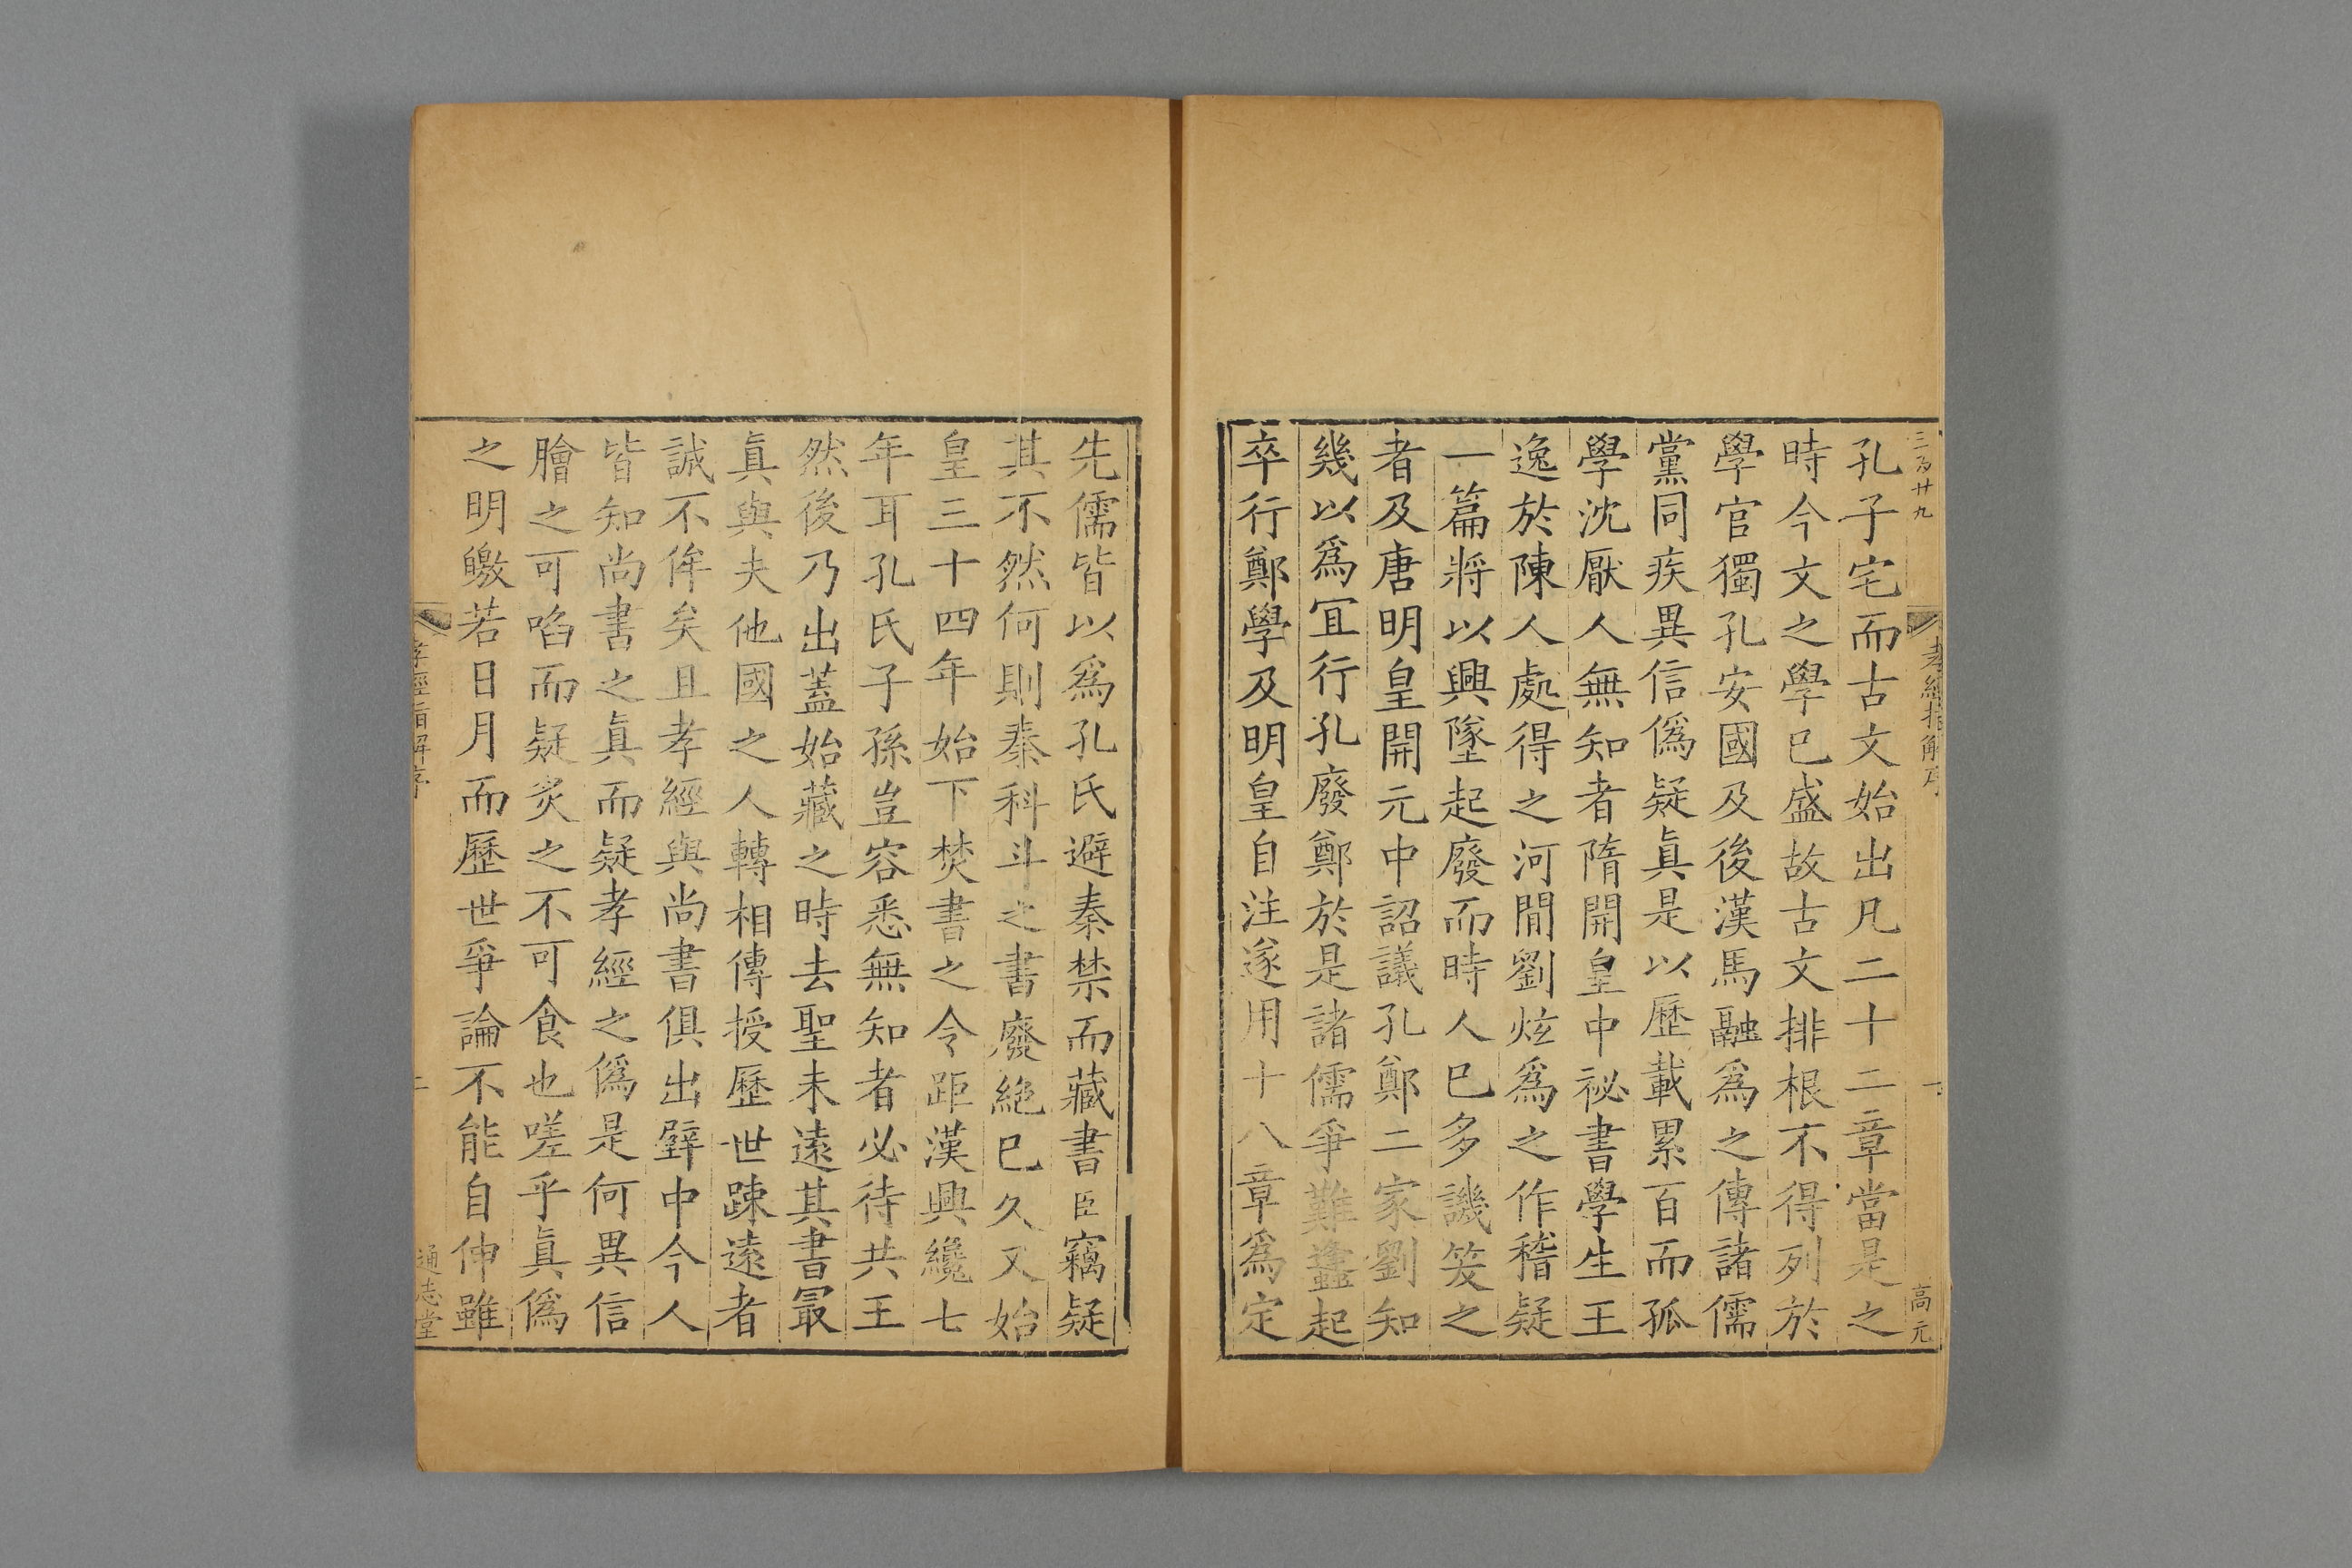 三百廿九
孝經指解序
一
高元
孔子宅而古文始出凡二十二章當是之
時今文之學已盛故古文排根不得列於
學官獨孔安國及後漢馬融爲之傳諸儒
黨同疾異信僞疑眞是以歷載累百而孤
學沈厭人無知者隋開皇中祕書學生王
逸於陳人處得之河閒劉炫爲之作稽疑
一篇將以興墜起廢而時人已多譏笑之
者及唐明皇開元中詔議孔鄭二家劉知
幾以爲宜行孔廢鄭於是諸儒爭難蠭起
卒行鄭學及明皇自注遂用十八章爲定
先儒皆以爲孔氏避秦禁而藏書臣竊疑
其不然何則秦科斗之書廢絕已久又始
皇三十四年始下焚書之令距漢興纔七
年耳孔氏子孫豈容悉無知者必待共王
然後乃出蓋始藏之時去聖未遠其書最
眞與夫他國之人轉相傳授歷世踈遠者
誠不侔矣且孝經與尚書俱出壁中今人
皆知尚書之眞而疑孝經之僞是何異信
膾之可啗而疑炙之不可食也嗟乎眞僞
之明皦若日月而歷世爭論不能自伸雖
孝經指解序
二
通志堂